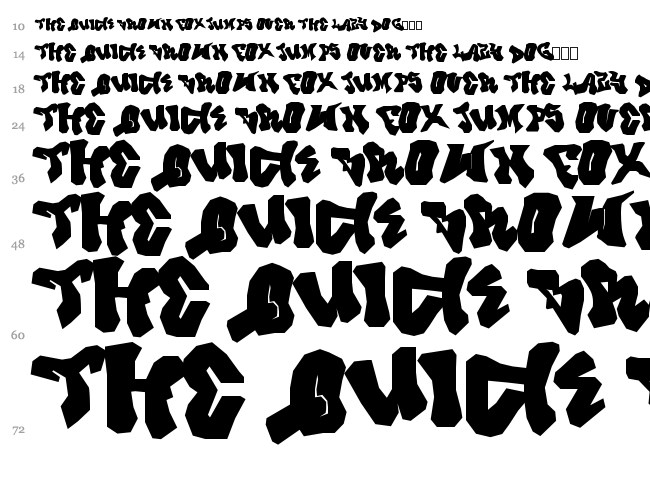 10 THE QUICK BROWN FOX JUMPS OVER THE LAZY DOG□□□
14 THE QUICK BROWN FOX JUMPS OVER THE LAZY DOG□□□
18 THE QUICK BROWN FOX JUMPS OVER THE LAZY D
24 THE QUICK BROWN FOX JUMPS OVER
36 THE QUICK BROWN FOX
48 THE QUICK BROWN
60 THE QUICK BR
72 THE QUICK